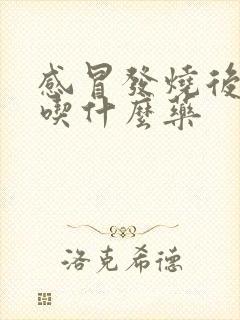 感冒發燒後
喫什麼藥
洛克希德